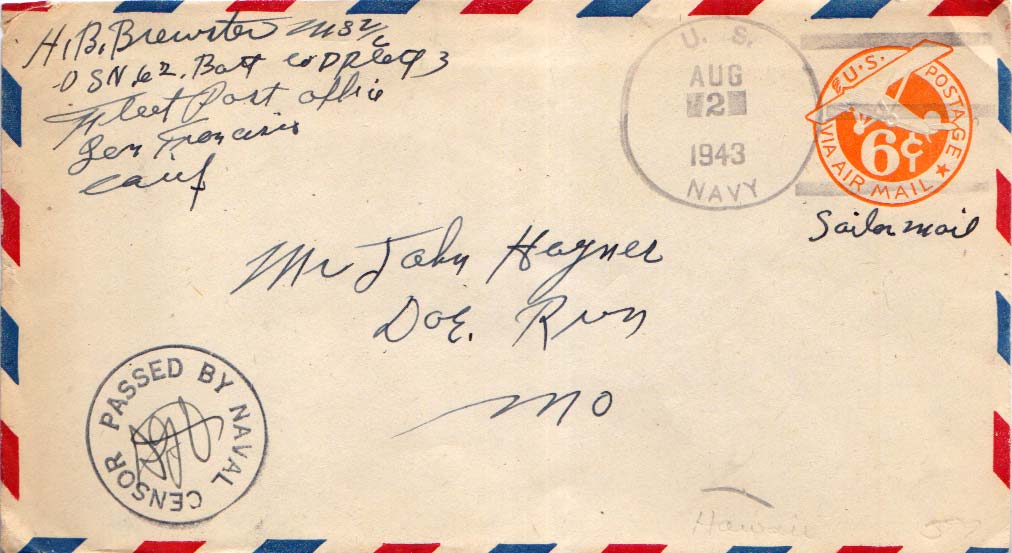 H. B. Brewster M 3 2/c
62. Batt Co D Plat 3
Fleet Post office
San Francisco
Calif
U. S.
AUG
2
1943
NAVY
U.S. POSTAGE
6¢
VIA AIR MAIL
Sailor mail
Mr John Hagner
Doe. Run
Mo
PASSED BY NAVAL CENSOR
Hawaii